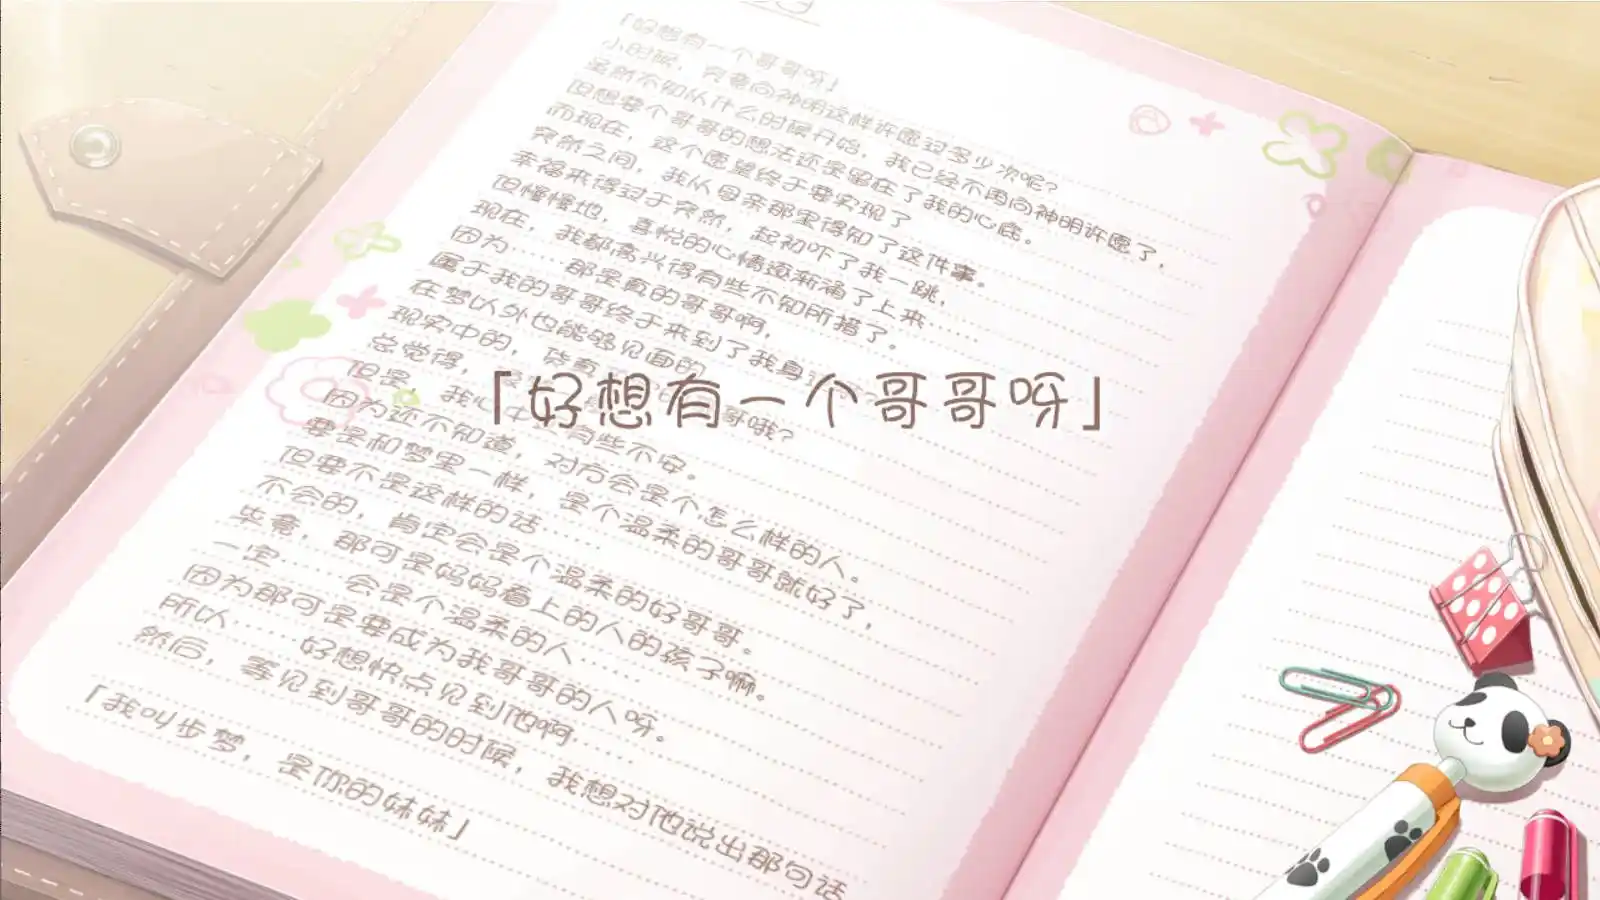 「好想有一个哥哥呀」
小时候，究竟向神明这样许愿过多少次呢？
虽然不知从什么时候开始，我已经不再向神明许愿了，
但想要个哥哥的想法还是留在了我的心底。
而现在，这个愿望终于要实现了
突然之间，我从母亲那里得知了这件事。
幸福来得过于突然，起初吓了我一跳，
但慢慢地，喜悦的心情逐渐涌了上来……
现在，我都高兴得有些不知所措了。
因为……那是真的哥哥啊，
属于我的哥哥终于来到了我身
在梦以外也能够见面的
现实中的，货真 哥哦？
总觉得，
但是，我心中 有些不安。
因为还不知道，对方会是个怎么样的人。
要是和梦里一样，是个温柔的哥哥就好了，
但要不是这样的话……
不会的，肯定会是个温柔的好哥哥。
毕竟，那可是妈妈看上的人的孩子嘛。
一定……会是个温柔的人……
因为那可是要成为我哥哥的人呀。
所以……好想快点见到他啊……
然后，等见到哥哥的时候，我想对他说出那句话
「我叫步梦，是你的妹妹」
「好想有一个哥哥呀」